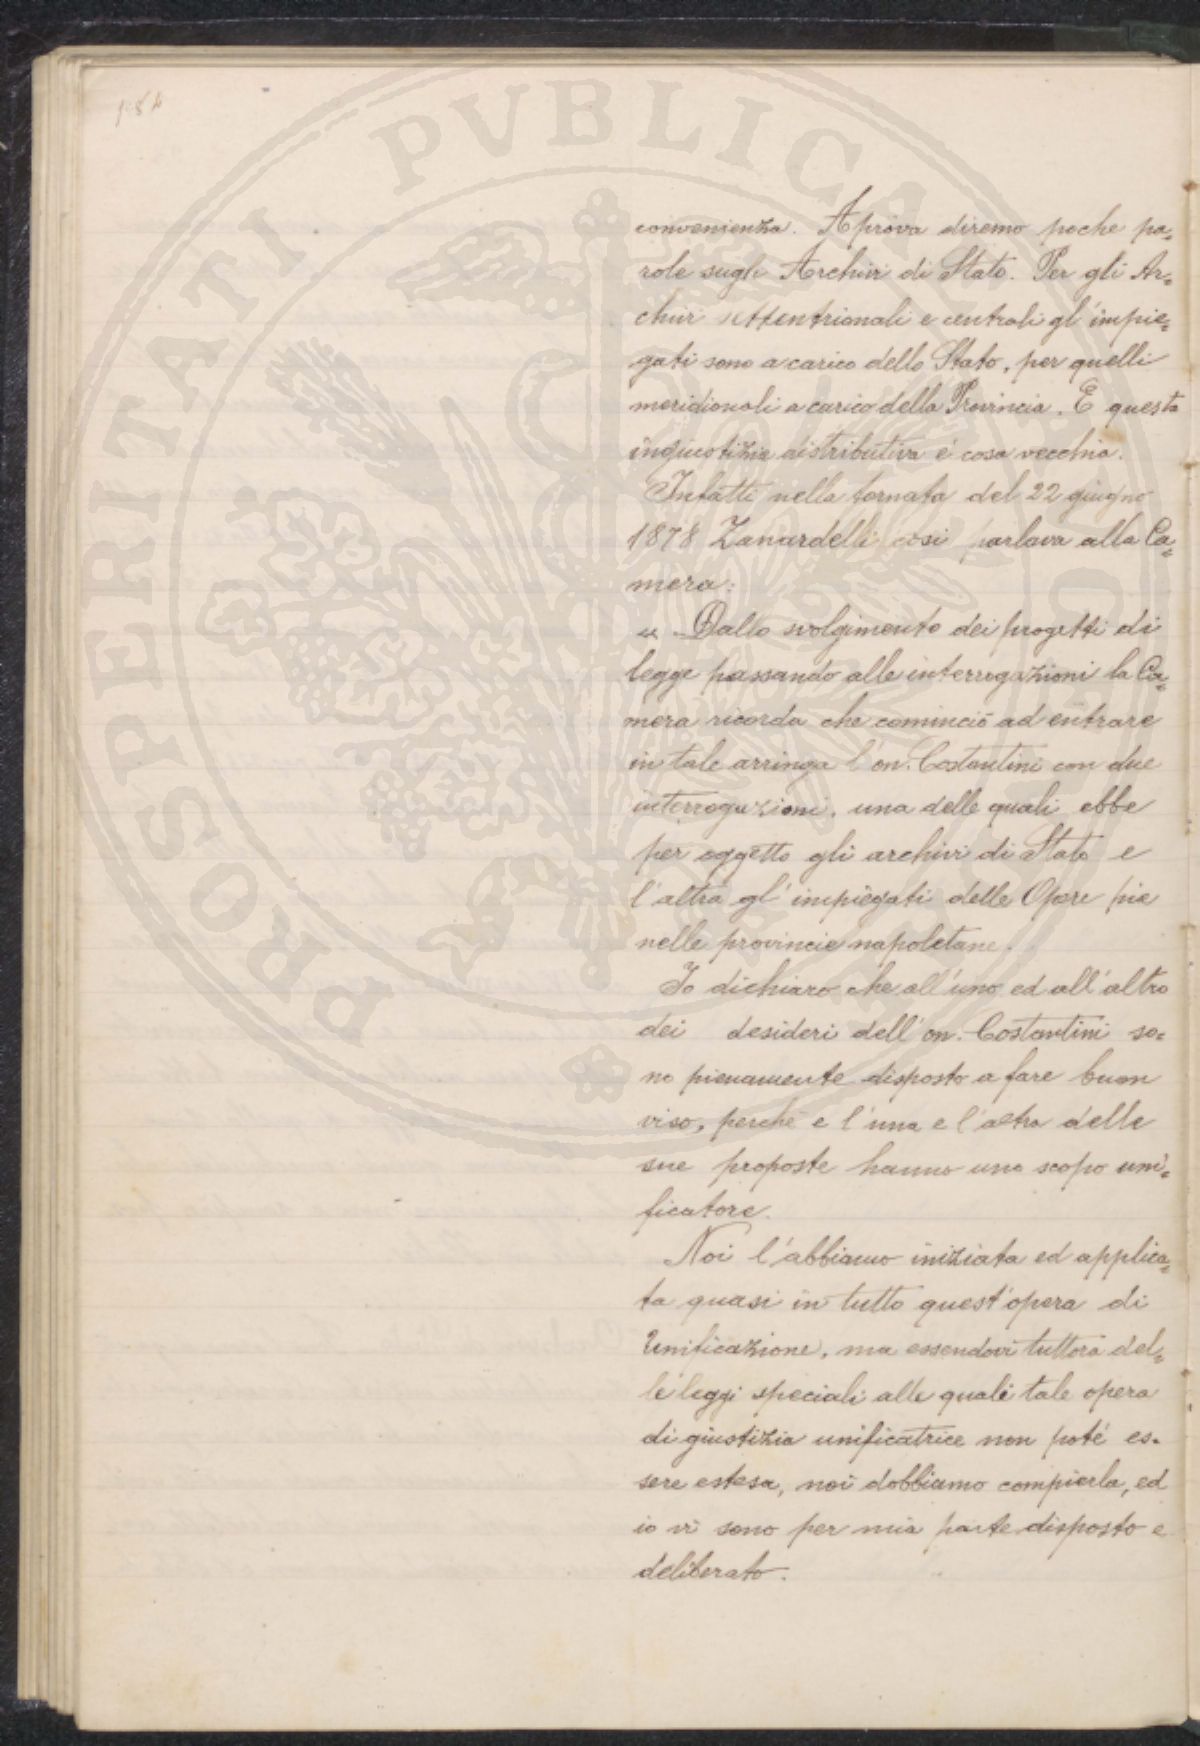 PROSPERITATI PVBLICAE
convenienza. A prova diremo poche pa=
role sugli Archivi di Stato. Per gli Ar=
chivi settentrionali e centrali gl'impie=
gati sono a carico dello Stato, per quelli
meridionali a carico della Provincia. E questa
ingiustizia distributiva é cosa vecchia.
Infatti nella tornata del 22 giugno
1878 Zanardelli così parlava alla Ca=
mera:
« Dallo svolgimento dei progetti di
legge passando alle interrogazioni la Ca=
mera ricorda che cominciò ad entrare
in tale arringa l'on. Costantini con due
interrogazioni, una delle quali ebbe
per oggetto gli archivi di Stato e
l'altra gl'impiegati delle Opere pie
nelle provincie napoletane.
Io dichiaro che all'uno ed all'altro
dei desideri dell'on. Costantini so=
no pienamente disposto a fare buon
viso, perché e l'una e l'altra delle
sue proposte hanno uno scopo uni=
ficatore.
Noi l'abbiamo iniziata ed applica=
ta quasi in tutto quest'opera di
Unificazione, ma essendovi tuttora del=
le leggi speciali alle quali tale opera
di giustizia unificatrice non poté es=
sere estesa, noi dobbiamo compierla, ed
io vi sono per mia parte disposto e
deliberato.